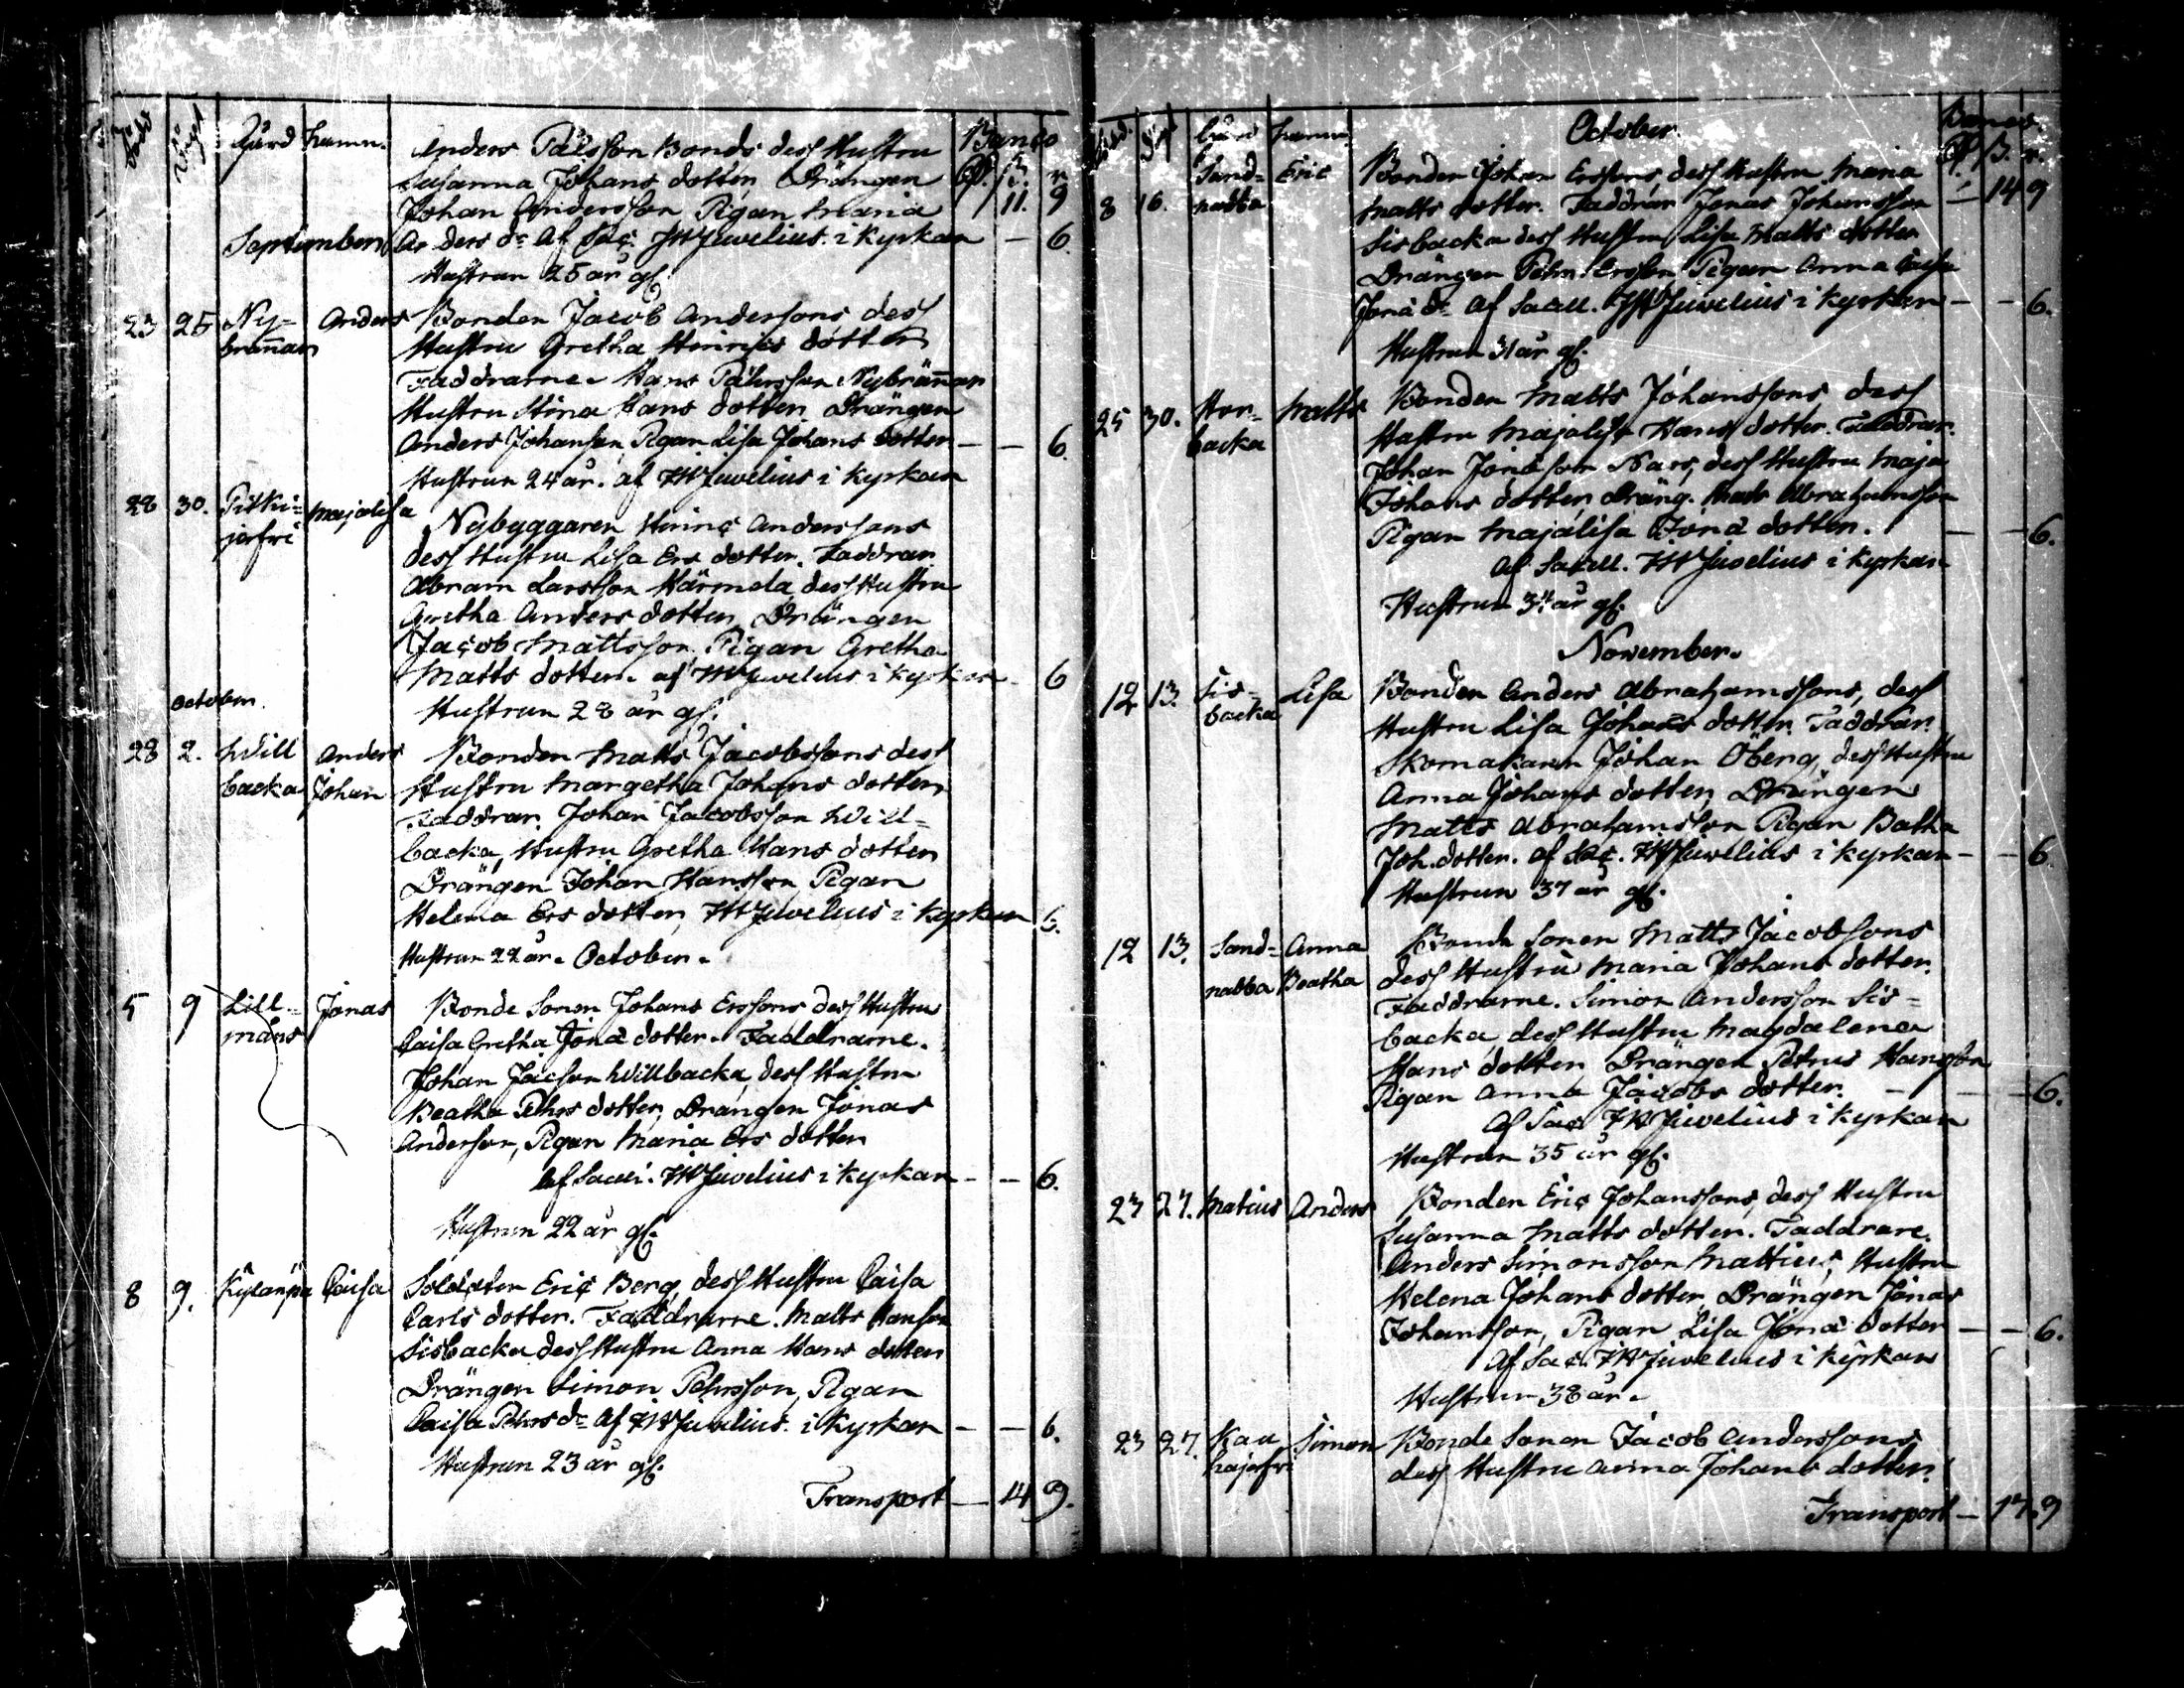 Född Döpt Gård hamn. Banco
Anders Pålsson Bonds dess Hustru
Susanna Johans dotter Drängen
Johan Andersson, Pigan Maria 11. 9
September Anders dr Af Sac. JWJuvelius i kyrkan — 6
Hustrun 25 år gl.
23 25 Ny- Anders Bonden Jacob Anderssons dess
brännan Hustru Gretha Hinrics dotter
Faddrarne. Hans Påhrsson Nybrännan
Hustru Stina Hans dotter Drängen
Anders Johansson, Pigan Lisa Johans dotter — — 6.
Hustrun 24 år. af JWJuvelius i kyrkan
28 30. Pitki- Majalisa
jerfvi Nybyggaren Hinric Anderssons
dess Hustru Lisa Ers dotter. Faddrar
Abram Larsson Härmälä dess Hustru
Gretha Anders dotter, Drängen
Jacob Mattsson, Pigan Gretha
Matts dotter. af JWJuvelius i kyrkan 6
October. Hustrun 28 år gl.
28 2. Will Anders Bonden Matts Jacobssons dess
backa Johan Hustru Margetha Johans dotter
Faddrar. Johan Jacobsson Will=
backa, Hustru Gretha Hans dotter
Drängen Johan Hansson Pigan
Helena Ers dotter, JWJuvelius i kyrkan 6.
Hustrun 22 år. October.
5 9 Lill= Jonas Bonde Sonen Johans Erssons dess Hustru
måns Caisa Gretha Jona dotter. Faddrarne.
Johan Jacsson Willbacka, dess Hustru
Beatha Pehrs dotter, Drängen Jonas
Andersson, Pigan Maria Ers dotter
af Sacell. JWJuvelius i kyrkan — — 6.
Hustrun 22 år gl.
8 9. Kylänpä Caisa Soldaten Eric Berg, dess Hustru Caisa
Carls dotter. Faddrarne. Matts Hansson
Sisbacka dess Hustru Anna Hans dotter
Drängen Simon Pehrsson, Pigan
Caisa Pehrs dr Af JWJuvelius. i kyrkan — — 6.
Hustrun 23 år gl.
Transport — 14 9.
Gård hamn. October. Banco.
8 16. Sand- Eric Bonden Johan Erssons dess Hustru Maria
nabba Matts dotter. Faddrar Jonas Johansson — 14 9
Sisbacka dess Hustru Lisa Matts dotter
Drängen Pehr Ersson Pigan Anna Caisa
Jona dr af Sacell. JWJuvelius i kyrkan — — 6.
Hustrun 31 år gl.
25 30. Hor- Matts Bonden Matts Johanssons dess
backa Hustru Majalisa Hans dotter. Faddrar.
Johan Jonasson Nars, dess Hustru Maja
Johans dotter, Dräng. Matts Abrahamsson
Pigan Majalisa Jona dotter. — — 6.
af Sacell. JWJuvelius i kyrkan
Hustrun 34 år gl.
November.
12 13. Sis- Lisa Bonden Anders Abrahamssons, dess
backa Hustru Lisa Johans dotter. Faddrar.
Skomakaren Johan Öberg, dess Hustru
Anna Johans dotter, Drängen
Matts Abrahamsson Pigan Batha
Joh. dotter. af Sac. JWJuvelius i kyrkan — — 6
Hustrun 37 år gl.
12 13. Sand- Anna Bonde Sonen Matts Jacobsons
nabba Beatha dess Hustru Maria Johans dotter.
Faddrarne. Simon Andersson Sis=
backa, dess Hustru Magdalena
Hans dotter Drängen Petrus Hansson
Pigan Anna Jacobs dotter. — — 6.
Af Sac JWJuvelius i kyrkan
Hustrun 35 år gl.
23 27. Matius Anders Bonden Eric Johanssons, dess Hustru
Susanna Matts dotter. Faddrare.
Anders Simonsson Mattius, Hustru
Helena Johans dotter, Drängen Jonas
Johansson, Pigan Lisa Jona dotter — — 6.
Af Sac. JWJuvelius i kyrkan
Hustrun 38 år.
23 27. Kau Simon Bonde Sonen Jacob Anderssons
hajerfvi dess Hustru Anna Johans dotter.
Transport — 17. 9